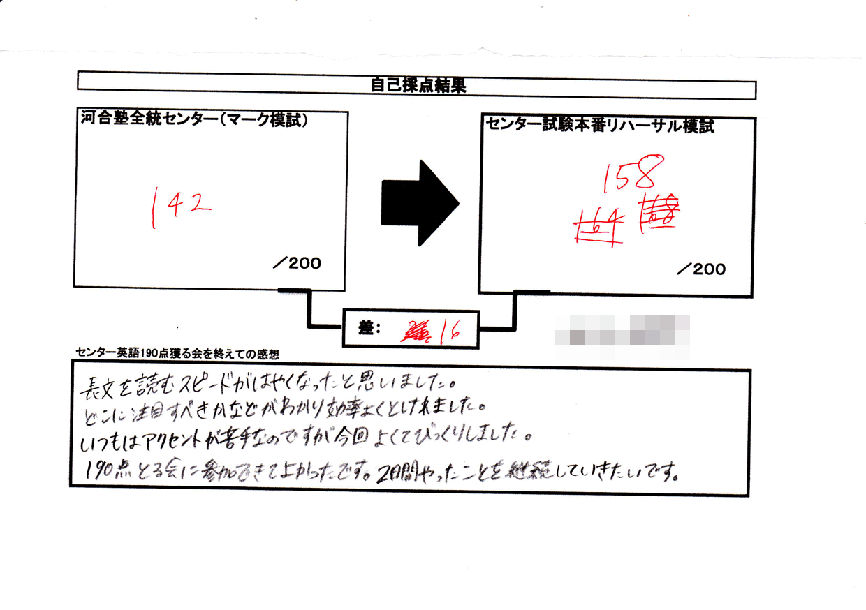 自己採点結果
河合塾全統センター(マーク模試)
142
/200
センター試験本番リハーサル模試
158
164
/200
差: 16
センター英語190点獲る会を終えての感想
長文を読むスピードがはやくなったと思いました。
どこに注目すべきかなどがわかり効率よくとけれました。
いつもはアクセントが苦手なのですが今回よくてびっくりしました。
190点とる会に参加できてよかったです。2日間やったことを継続していきたいです。